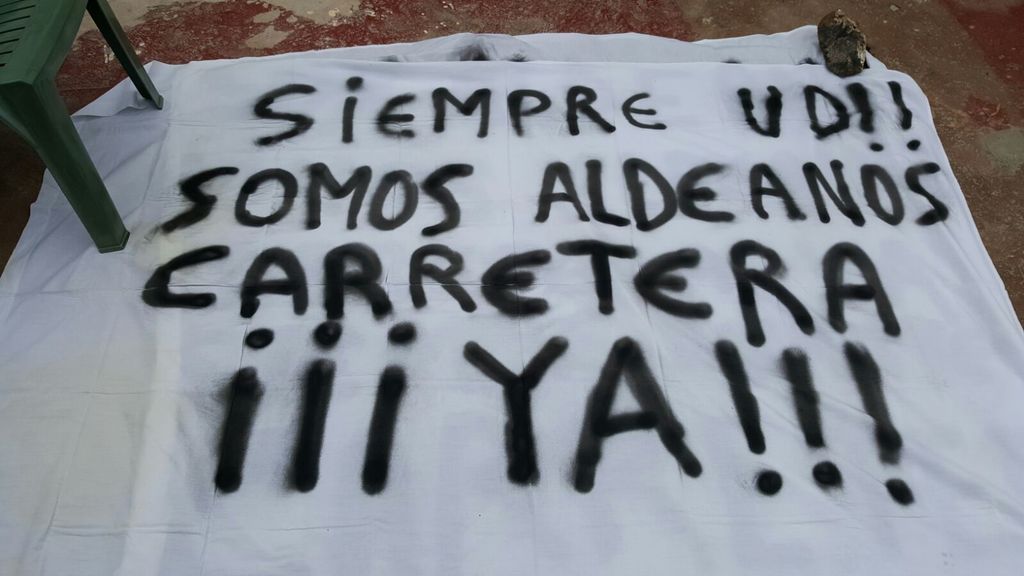 SiEMPRE UD!!
SOMOS ALDEANOS
CARRETERA
¡¡¡YA!!!